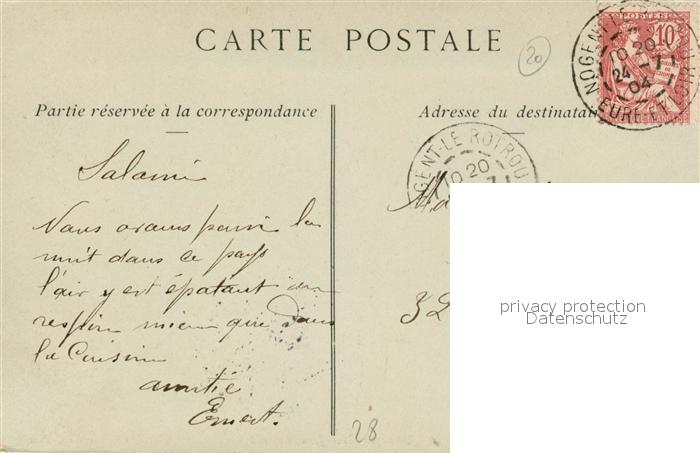 CARTE POSTALE
20
POSTES
10
NOGENT-LE
10 20
24 -7
04
EURE-ET-LOIR
Partie réservée à la correspondance
Adresse du destinatair
GENT-LE ROTROU
10 20
Salami
Nous avons passé la
nuit dans ce pays
l'air y est épatant on
respire mieux que dans
la Cuisine
amitié
Ernest.
32
28
privacy protection
Datenschutz